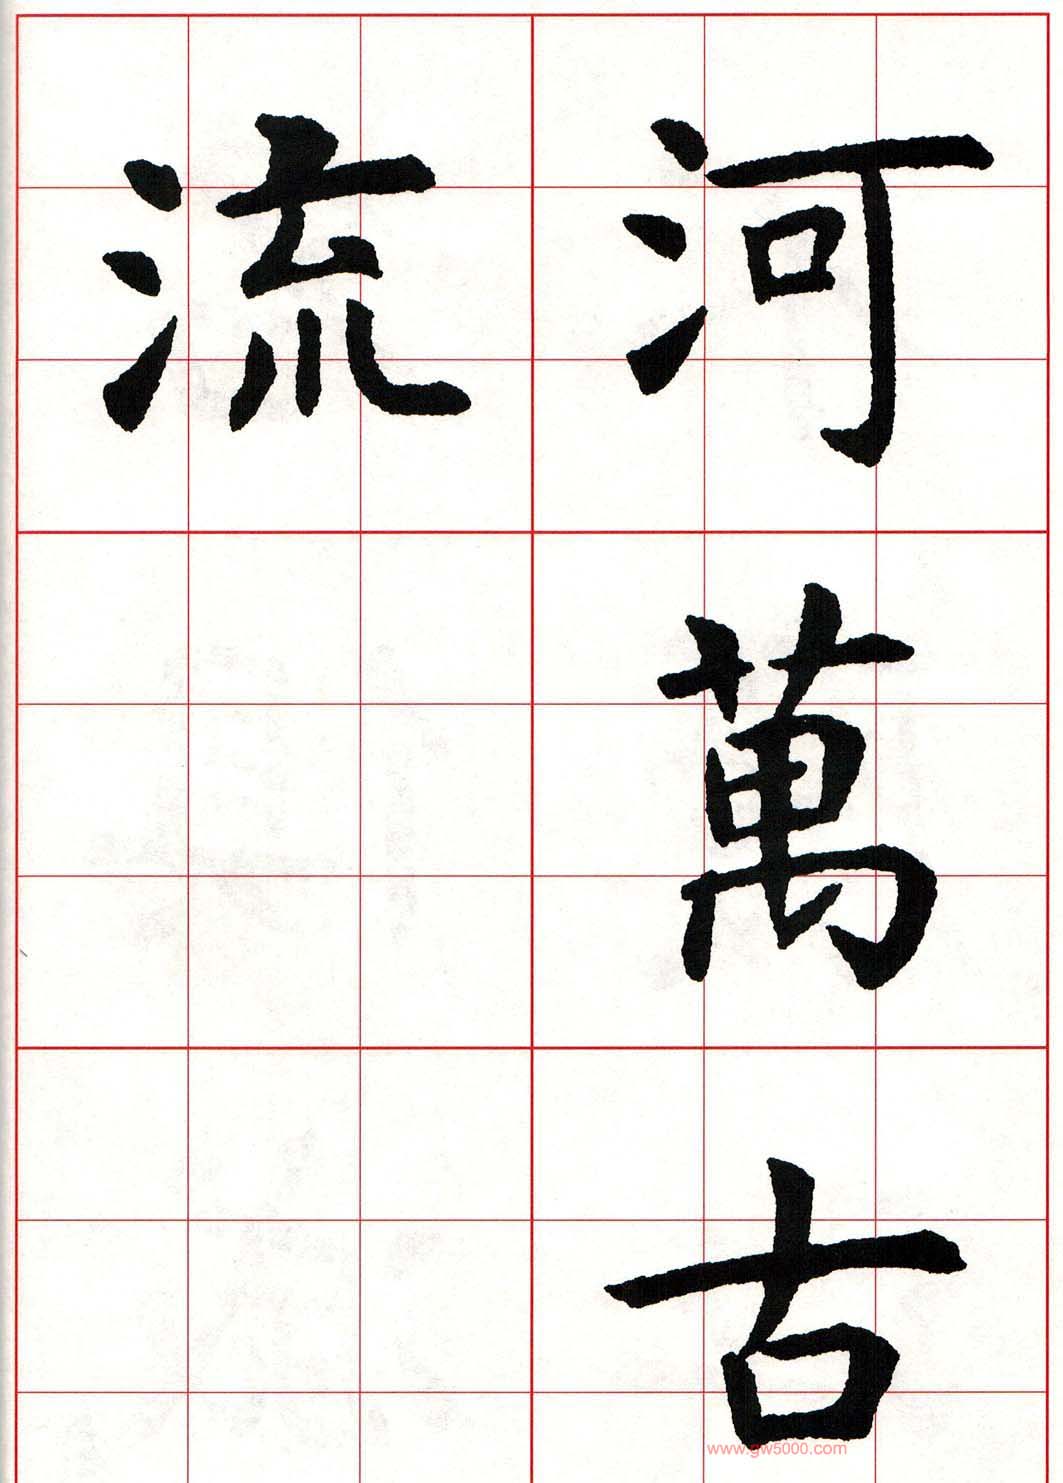 河萬古
流
www.gw5000.com